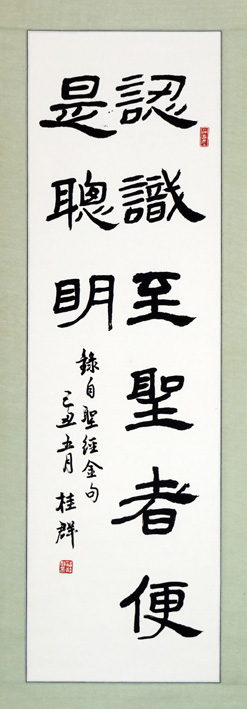 認識至聖者便
是聰明
錄自聖經金句
己丑五月 桂群